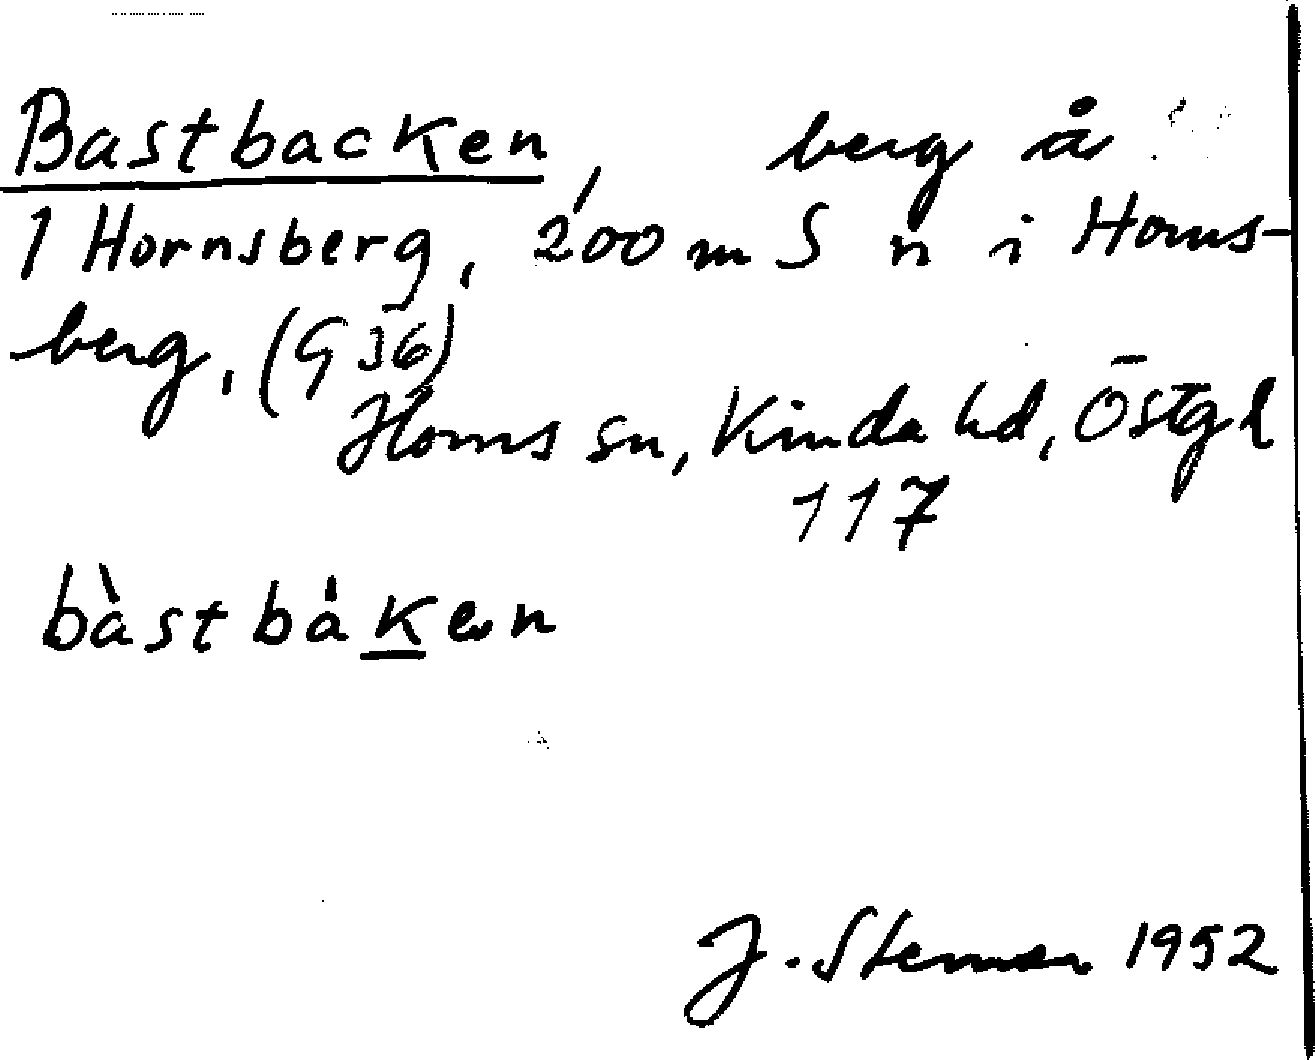 Bastbacken, berg å
1 Hornsberg, 200 m S n i Horns-
berg, (G J6)
Horns sn, Kinda hd, Östgl
117
bàstbáken
J. 1952